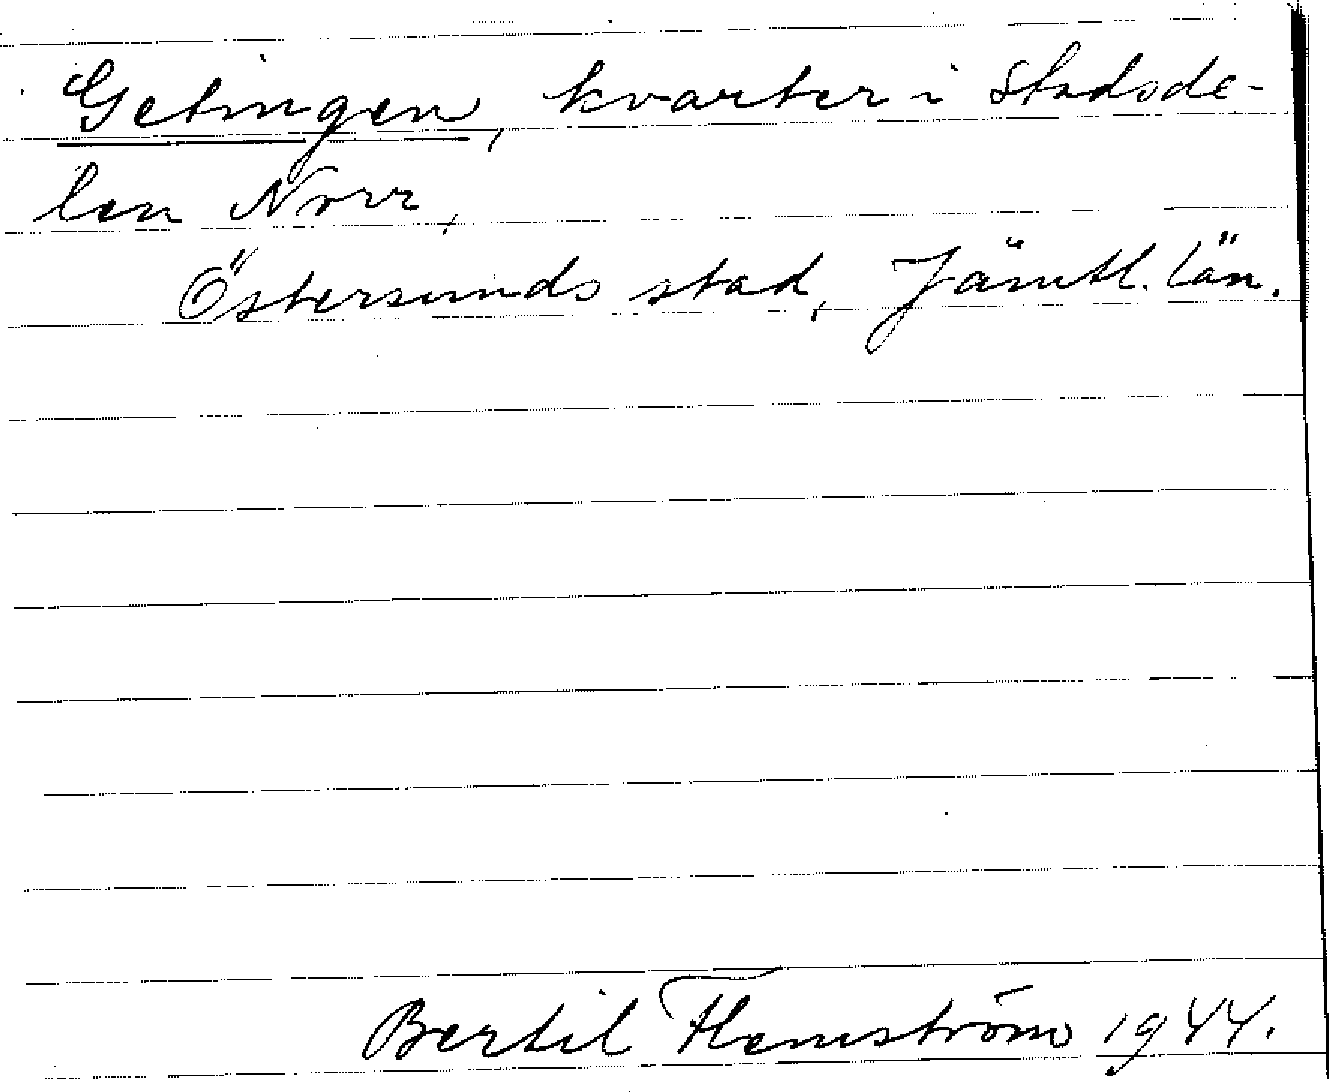 Getingen, kvarter i stadsde-
len Norr,
Östersunds stad, Jämtl. län.
Bertil Flemström 1944.